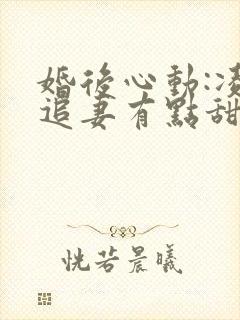 婚後心動:凌
追妻有點甜
恍若晨曦